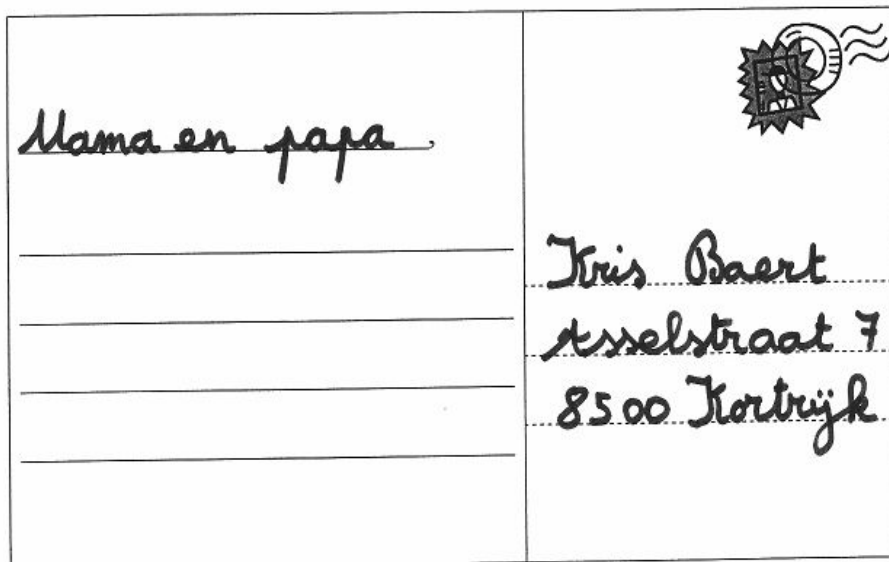 Mama en papa,
Kris Baert
Asselstraat 7
8500 Kortrijk